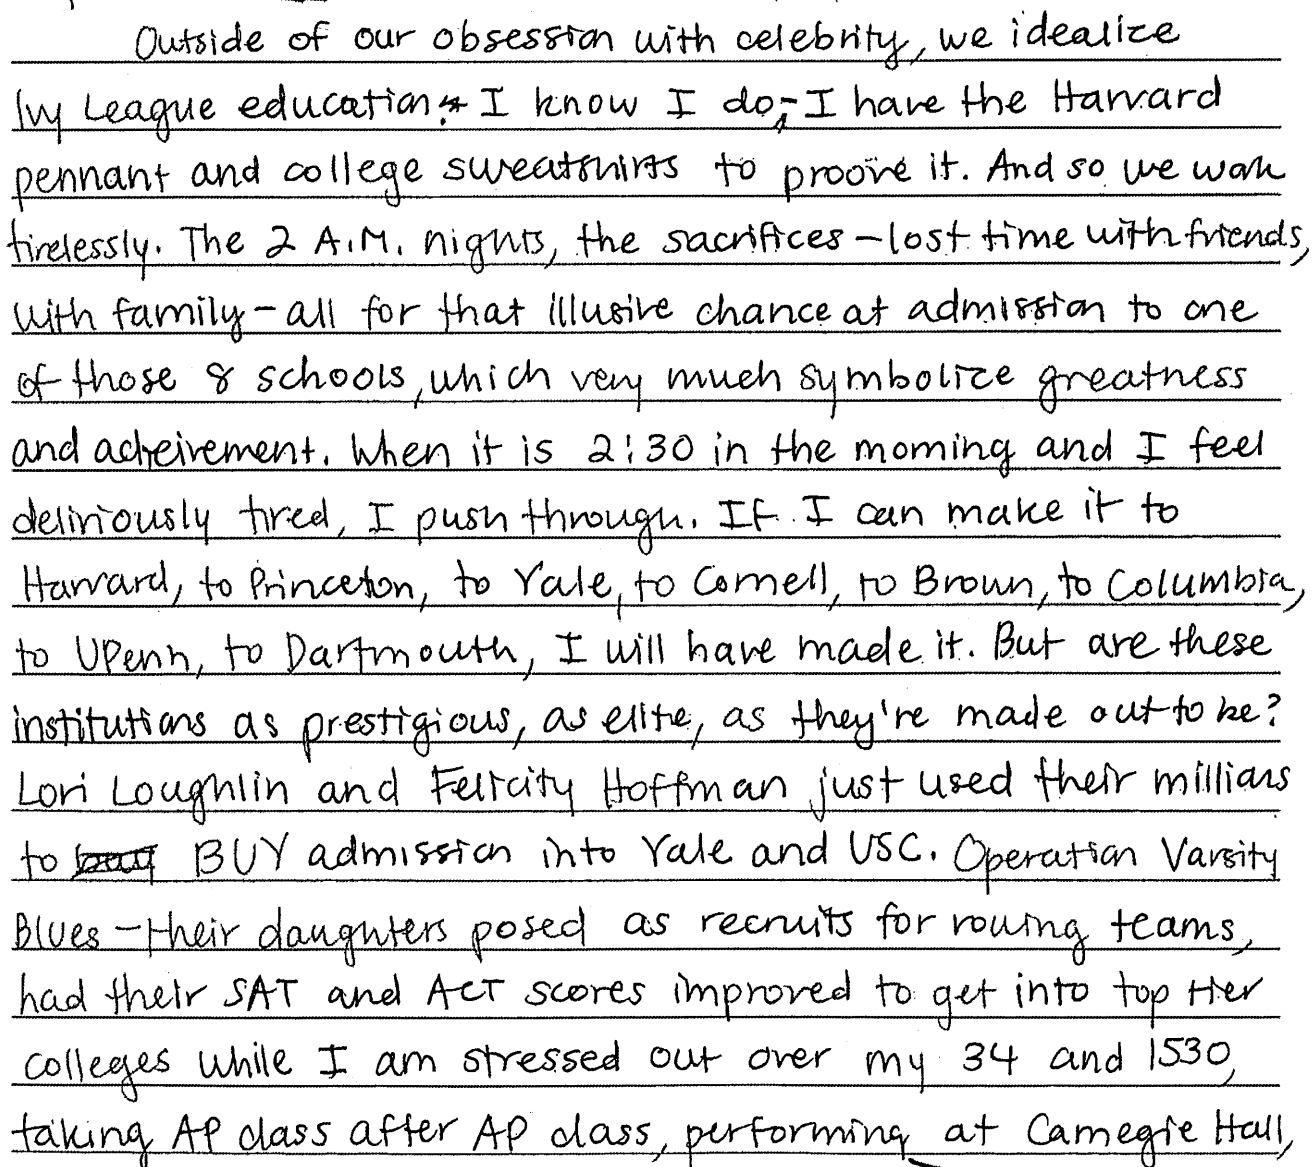 Outside of our obsession with celebrity, we idealize
Ivy League education. I know I do; I have the Harvard
pennant and college sweatshirts to proove it. And so we work
tirelessly. The 2 A.M. nights, the sacrifices – lost time with friends,
with family – all for that illusive chance at admission to one
of those 8 schools, which very much symbolize greatness
and acheivement. When it is 2:30 in the morning and I feel
deliriously tired, I push through. If I can make it to
Harvard, to Princeton, to Yale, to Cornell, to Brown, to Columbia,
to UPenn, to Dartmouth, I will have made it. But are these
institutions as prestigious, as elite, as they're made out to be?
Lori Loughlin and Felicity Hoffman just used their millions
to BUY admission into Yale and USC. Operation Varsity
Blues – their daughters posed as recruits for rowing teams,
had their SAT and ACT scores improved to get into top tier
colleges while I am stressed out over my 34 and 1530,
taking AP class after AP class, performing at Carnegie Hall,